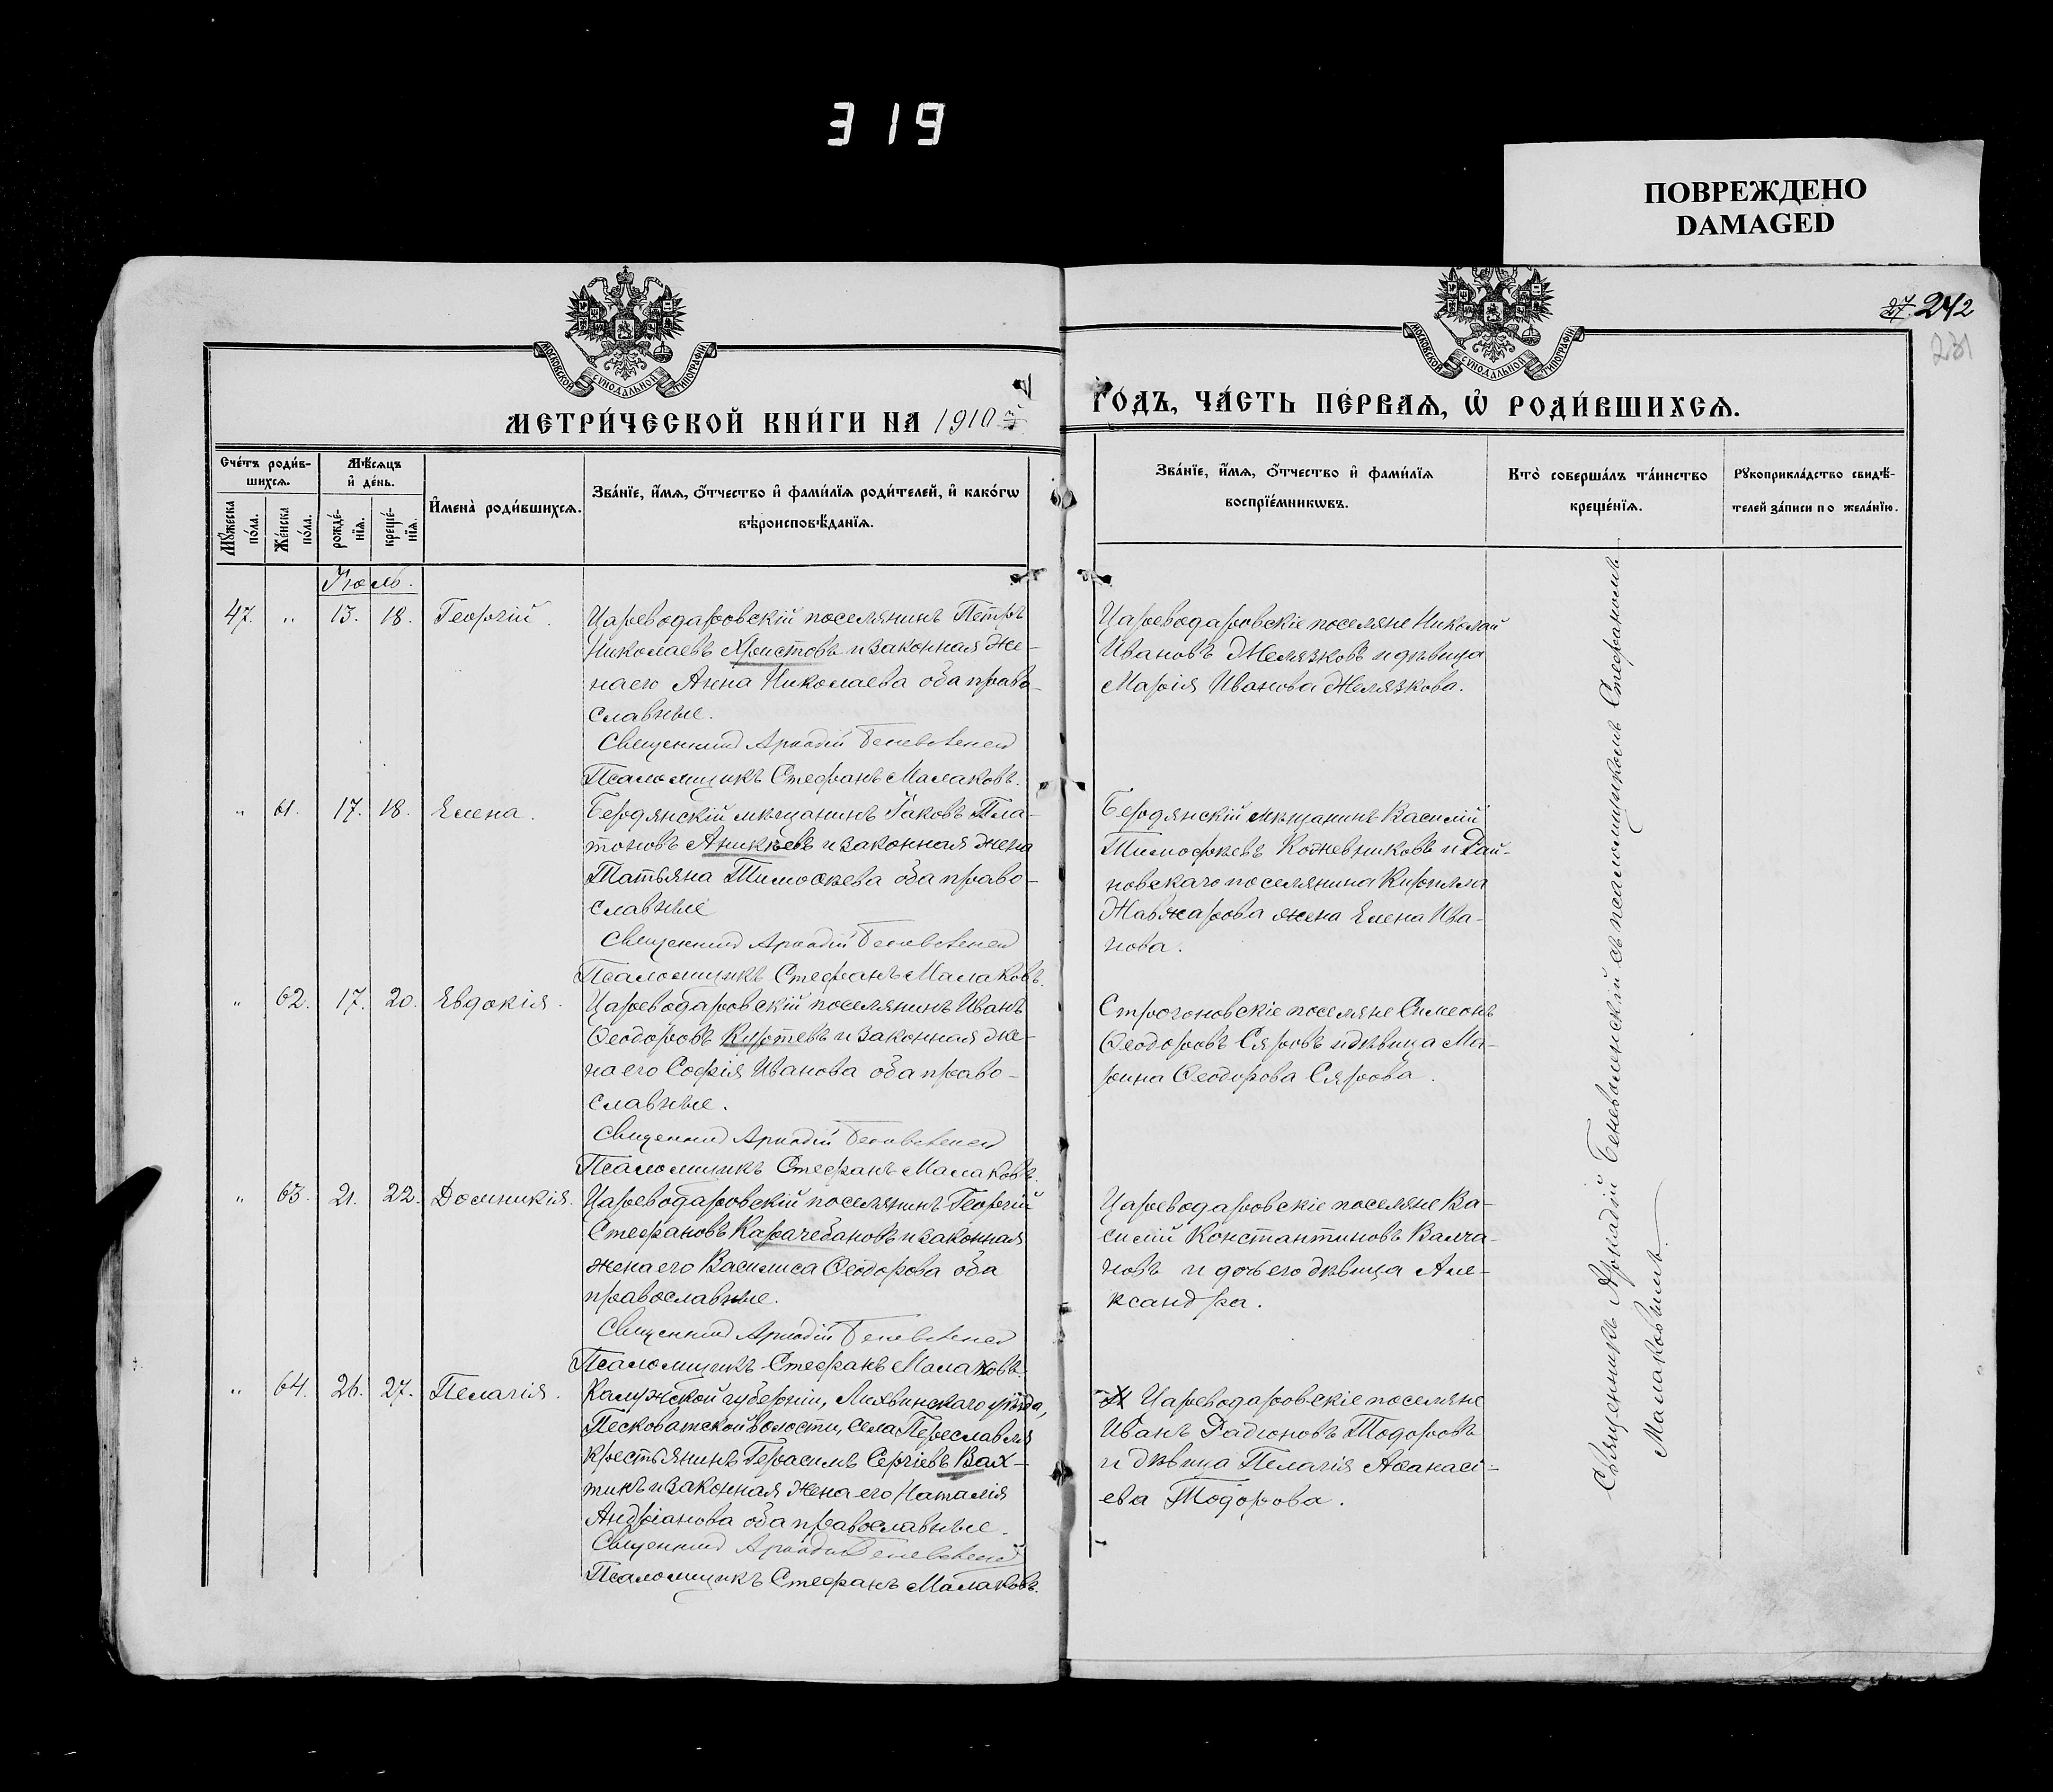 319
ПОВРЕЖДЕНО
DAMAGED
27. 242
231
МОСКОВСКОЙ СѴНОДАЛЬНОЙ ТИПОГРАФІИ
МОСКОВСКОЙ СѴНОДАЛЬНОЙ ТИПОГРАФІИ
МЕТРИ́ЧЕСКОЙ КНИ́ГИ НА 1910 й
ГО́ДЪ, ЧА́СТЬ ПЕ́РВАѦ, Ѽ РОДИ́ВШИХСѦ.
Сче́тъ роди́в-
шихсѧ.
Мꙋ́жеска по́ла.
Же́нска по́ла.
Мѣ́сѧцъ
и҆ де́нь.
рожде́-нїѧ.
креще́-нїѧ.
И҆мена̀ роди́вшихсѧ.
Зва́нїе, и҆́мѧ, ѻ҆́тчество и҆ фами́лїѧ роди́телей, и҆ како́гѡ
вѣроисповѣ́данїѧ.
Зва́нїе, и҆́мѧ, ѻ҆́тчество и҆ фами́лїѧ
воспрїе́мникѡвъ.
Кто̀ соверша́лъ та́инство
креще́нїѧ.
Рꙋкоприкла́дство свидѣ́-
телей за́писи по жела́нїю.
Іюль.
47. " 13. 18. Георгій.
Цареводаровскій поселянинъ Петръ
Николаевъ Христовъ и законная же-
на его Анна Николаева оба право-
славные.
Священник Аркадій
Псаломщикъ Стефанъ Малаковъ.
Цареводаровскіе поселяне Николай
Ивановъ Желязковъ и дѣвица
Марія Иванова Желязкова.
" 61. 17. 18. Елена.
Бердянскій мѣщанинъ Іаковъ Пла-
тоновъ Аникѣевъ и законная жена
Татьяна Тимоѳеева оба право-
славные
Священник Аркадій
Псаломщикъ Стефанъ Малаковъ.
Бердянскій мѣщанинъ Василій
Тимофѣевъ Кожевниковъ и Рай-
новскаго поселянина Кирилла
Жавжарова жена Елена Ива-
нова.
" 62. 17. 20. Евдокія.
Цареводаровскій поселянинъ Иванъ
Ѳеодоровъ Киртевъ и законная же-
на его Софія Иванова оба право-
славные.
Священник Аркадій
Псаломщикъ Стефанъ Малаковъ.
Строгоновскіе поселяне Симеонъ
Ѳеодоровъ Сяровъ и дѣвица Ма-
рина Ѳеодорова Сярова.
" 63. 21. 22. Домникія.
Цареводаровскій поселянинъ Георгій
Стефановъ Карачебановъ и законная
жена его Василиса Ѳеодорова оба
православные.
Священник Аркадій
Псаломщикъ Стефанъ Малаковъ.
Цареводаровскіе поселяне Ва-
силій Константиновъ Валча-
новъ и дочь его дѣвица Але-
ксандра.
" 64. 26. 27. Пелагія.
Калужской губерніи, Лихвинскаго уѣзда,
Песковатской волости, села Переславля
крестьянинъ Герасимъ Сергіевъ Вах-
тинъ и законная жена его Наталія
Андріанова оба православные.
Священник Аркадій
Псаломщикъ Стефанъ Малаковъ.
Цареводаровскіе поселяне
Иванъ Радіоновъ Тодоровъ
и дѣвица Пелагія Аѳанасі-
ева Тодорова.
Священникъ Аркадій Беневоленскій съ псаломщикомъ Стефаномъ
Малаковымъ.